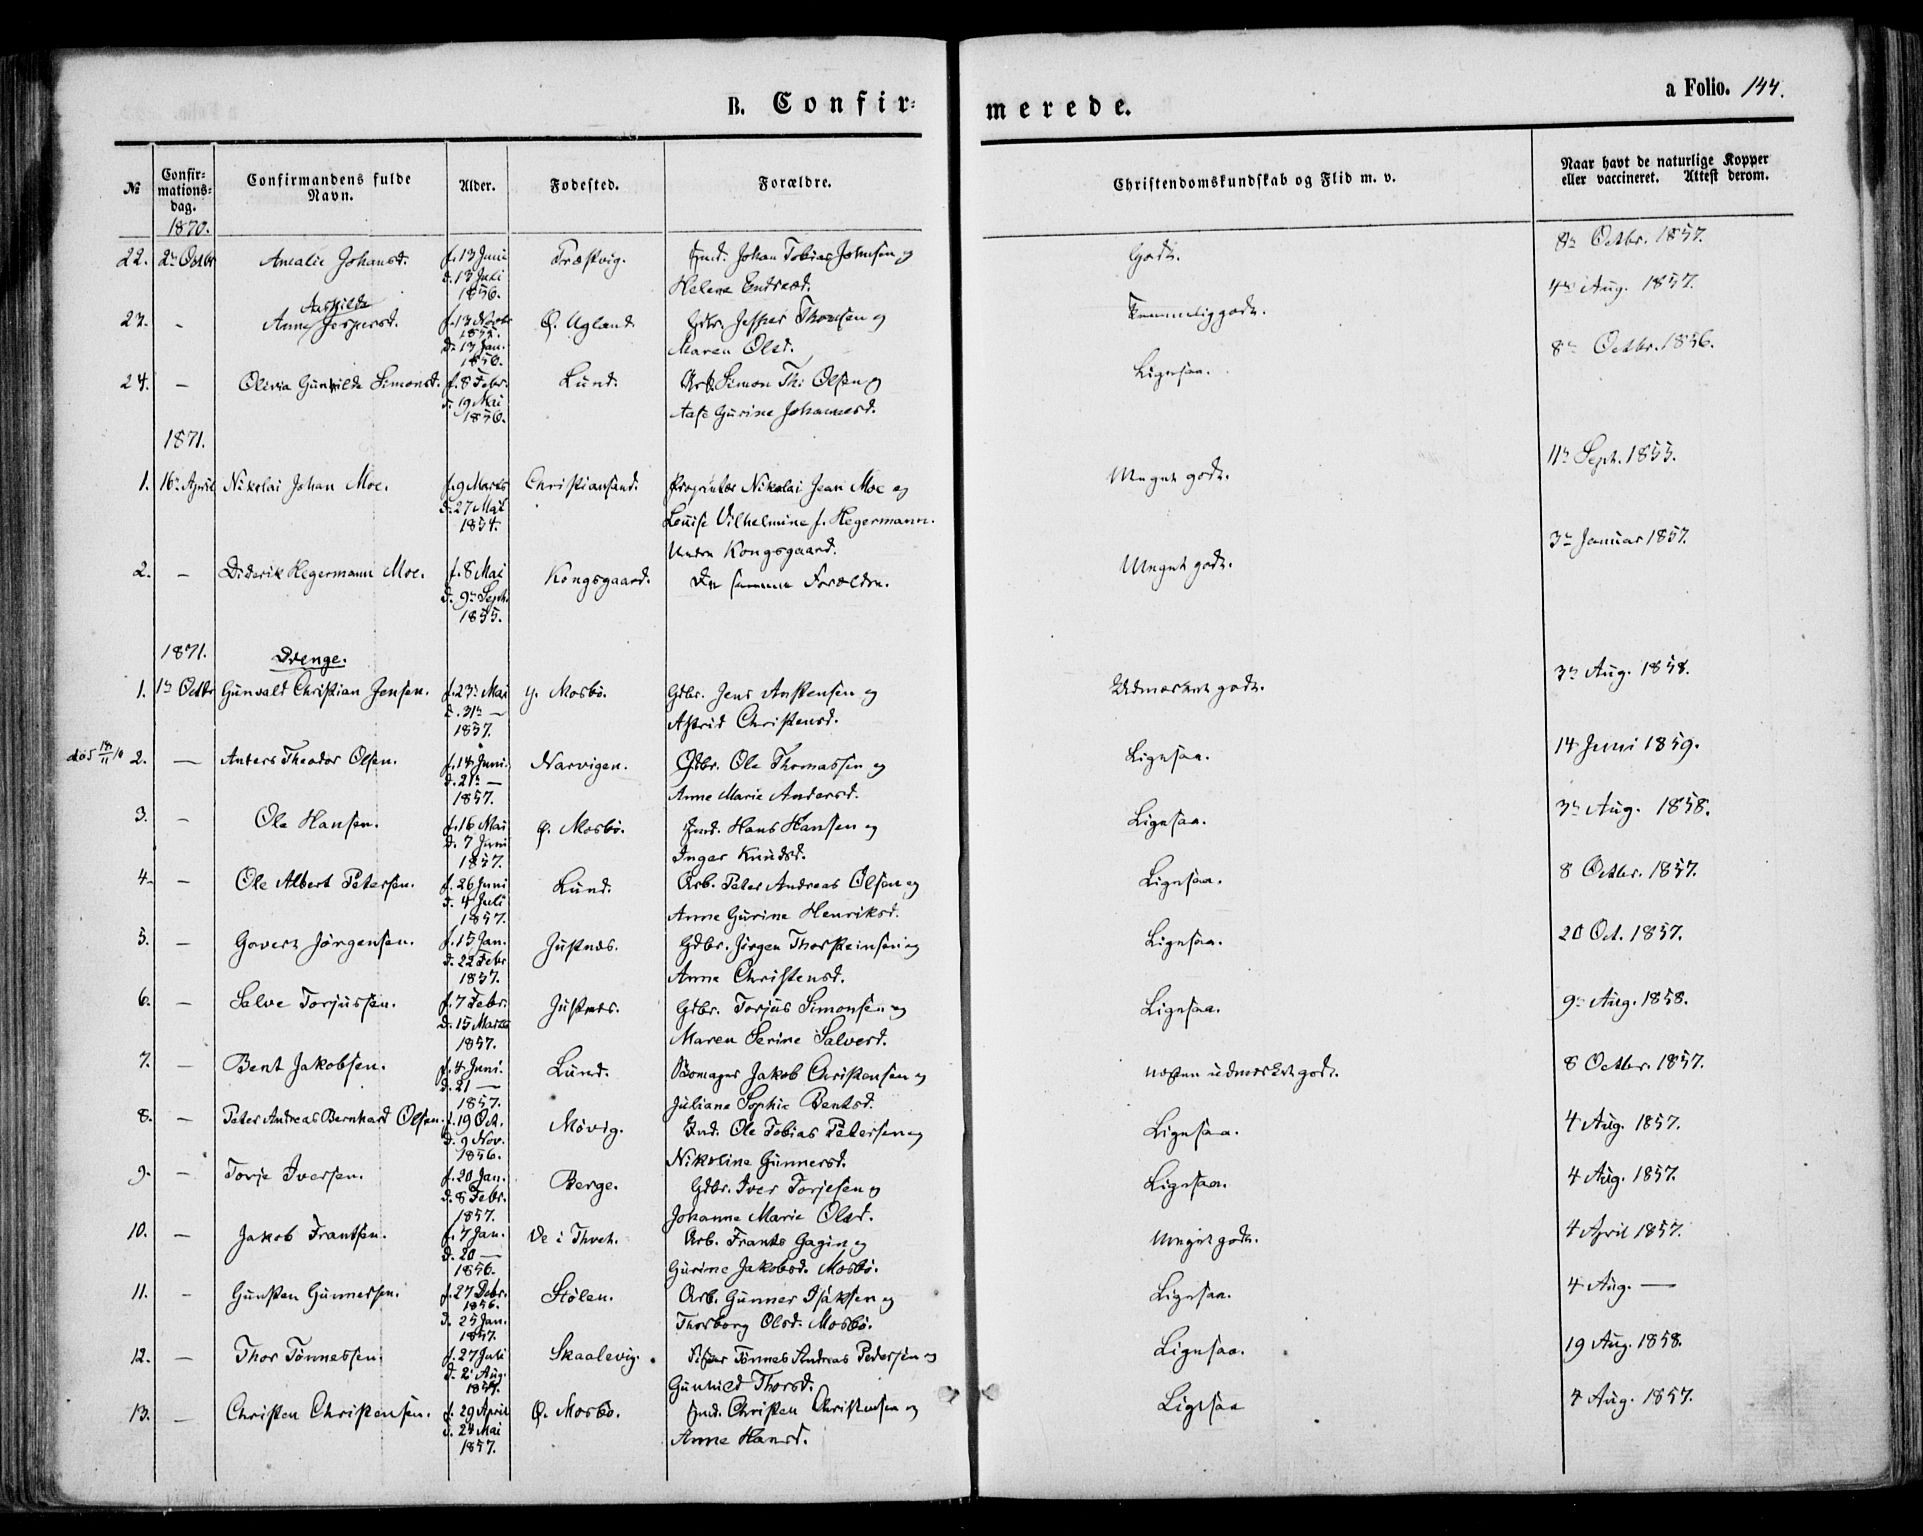 B. Confir=
merede.
a Folio. 144.
№ Confirmations=dag. Confirmandens fulde Navn. Alder. Fødested. Forældre. Christendomskundskab og Flid m. v. Naar havt de naturlige Kopper eller vaccineret. Attest derom.
1870.
22. 2n Octbr Amalie Johansd. f. 13 Juni Træskvig. Ind. Johan Tobias Johnsen og Godt. 8n Octbr. 1857.
d. 13 Juli
1856. Helene Endresd. 4n Aug. 1857.
Aashilde
23. - Anne Jespersd. f. 13 Novbr Ø. Ugland Gdbr. Jesper Thomsen og Temmelig godt.
1855.
D. 13 Jan. Maren Olsd. 8n Octbr. 1856.
1856.
24. - Olivia Gunhilde Simonsd. f. 8 Febr. Lund. Arb. Simon Th: Olsen og Ligesaa.
d. 19 Mai
1856. Aase Gurine Johannesd.
1871.
11n Sept. 1855.
1. 16n April Nikolai Johan Moe. f. 9 Marts Christiansand. Proprietær Nikolai Jean Moe og Meget godt.
d. 27 Mai
1854. Louise Vilhelmine f. Hegermann.
Kongsgaard. 3n Januar 1857.
2. - Diderik Hegermann Moe. f. 8 Mai Kongsgaard. De samme Forældre. Meget godt.
d. 9n Sept.
1855.
1871.
Drenge.
3n Aug. 1858.
1. 1n Octbr Gunvald Christian Jensen. f. 23n Mai y. Mosbø. Gdbr. Jens Anstensen og Udmærket godt.
d. 31n —
1857. Astrid Christensd.
død 2. — Anders Theodor Olsen. f. 14 Juni. Narvigen. Gdbr. Ole Thomassen og Ligesaa. 14 Juni 1859.
d. 21n —
1857. Anne Marie Andersd.
3. - Ole Hansen. f. 16 Mai Ø. Mosbø. Ind. Hans Hansen og Ligesaa. 3n Aug. 1858.
d. 7 Juni
1857. Inger Knudsd.
4. - Ole Albert Petersen. f. 26 Juni Lund. Arb. Peter Andreas Olsen og Ligesaa. 8 Octbr. 1857.
d. 4 Juli
1857. Anne Gurine Henriksd.
5. - Govert Jørgensen. f. 15 Jan. Justnæs. Gdbr. Jørgen Thorsteinsen og Ligesaa. 20 Oct. 1857.
d. 22 Febr
1857. Anne Christensd.
6. - Salve Torjussen. f. 7 Febr. Justnæs. Gdbr. Torjus Simonsen og Ligesaa. 9n Aug. 1858.
d. 15 Marts
1857. Maren Serine Salvesd.
7. - Bent Jakobsen. f. 4 Juni. Lund. Bomager Jakob Christensen og næsten udmærket godt. 8 Octbr. 1857.
d. 21 —
1857. Juliane Sophie Bentsd.
8. - Peter Andreas Bernhard Olsen. f. 19 Oct. Møvig. Ind. Ole Tobias Petersen og Ligesaa. 4 Aug. 1857.
d. 9 Nov.
1856. Nikoline Gunnersd.
9. - Torje Iversen. f. 20 Jan. Berge. Gdbr. Iver Torjesen og Ligesaa. 4 Aug. 1857.
d. 8 Febr.
1857. Johanne Marie Olsd.
10. - Jakob Frantsen. f. 7 Jan. Ve i Thvet. Arb. Frants Gagin og Meget godt. 4 April 1857.
d. 20 —
1856. Gurine Jakobsd. Mosbø.
11. - Gunsten Gunnersen. f. 27 Debr. Stølen. Arb. Gunner Isaksen og Ligesaa. 4 Aug. —
1856.
d. 25 Jan. Thorborg Olsd. Mosbø.
1857.
12. — Thor Tønnessen. f. 27 Juli Skaalevig. Fisker Tønnes Andreas Pedersen og Ligesaa. 19 Aug. 1858.
d. 2 Aug.
1857. Gunhild Thorsd.
13. — Christen Christensen. f. 29 April Ø. Mosbø. Ind. Christen Christensen og Ligesaa 4 Aug. 1857.
d. 24 Mai
1857. Anne Hansd.